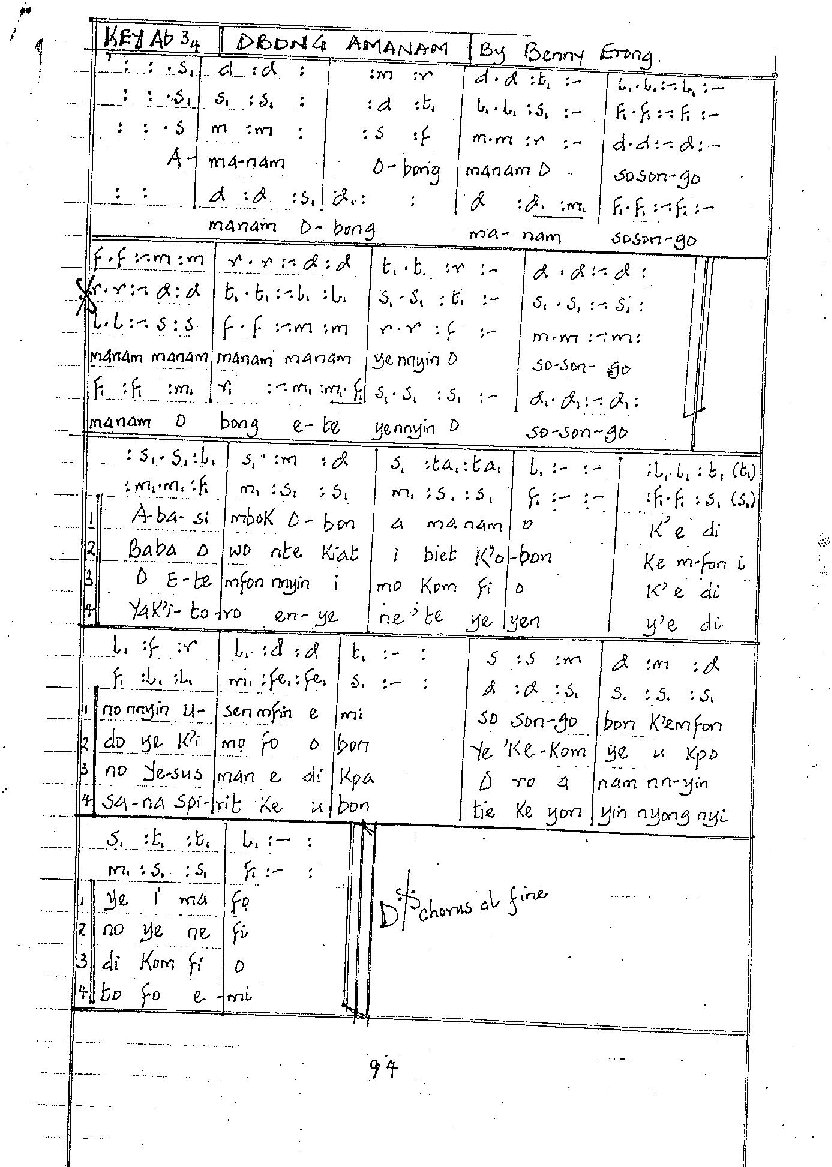 KEY Ab 3/4 OBONG AMANAM By Benny Etong.
: : . s₁ d : d : : m : r d . d : t₁ : - l₁ . l₁ : - l₁ : -
: : . s₁ s₁ : s₁ : : d : t₁ l₁ . l₁ : s₁ : - f₁ . f₁ : - f₁ : -
: : . s m : m : : s : f m . m : r : - d . d : - d : -
A- ma-nam O-bong manam O soson-go
: : d : d : s₁ d₁ : : d : d₁ : m₁ f₁ . f₁ : - f₁ : -
manam O-bong ma-nam soson-go
f . f : - m : m r . r : - d : d t₁ . t₁ : r : - d . d : - d :
r . r : - d : d t₁ . t₁ : - l₁ : l₁ s₁ . s₁ : t₁ : - s₁ . s₁ : - s₁ :
l . l : - s : s f . f : - m : m r . r : f : - m . m : - m :
manam manam manam manam yennyin O so-son-go
f₁ : f₁ : m₁ r₁ : - m₁ : m₁ . f₁ s₁ . s₁ : s₁ : - d₁ . d₁ : - d₁ :
manam O bong e-te yennyin O so-son-go
: s₁ . s₁ : l₁ s₁ : m : d s₁ : ta₁ : ta₁ l₁ : - : - : l₁ . l₁ : t₁ (t₁)
: m₁ . m₁ : f₁ m₁ : s₁ : s₁ m₁ : s₁ : s₁ f₁ : - : - : f₁ . f₁ : s₁ (s₁)
1 A-ba-si mboK O-bon a manam o K'e di
2 Baba O wo nte Kiat i biet K'o-bon Ke m-fon i
3 O E-te mfon nnyin i mo Kom fi o K'e di
4 YaK'i-to-ro en-ye ne'te ye yen y'e di
l₁ : f : r l₁ : d : d t₁ : - : s : s : m d : m : d
f₁ : l₁ : l₁ m₁ : fe₁ : fe₁ s₁ : - : d : d : s₁ s₁ : s₁ : s₁
1 no nnyin u- sen mfin e mi so son-go bon K'emfon
2 do ye K'i mo fo o bon Ye 'Ke-Kom ye u Kpo
3 no Ye-sus man e di Kpa O ro a nam nn-yin
4 Sa-na Spi-rit Ke u bon tie Ke yon yin nyong nyi
s₁ : t₁ : t₁ l₁ : - :
m₁ : s₁ : s₁ f₁ : - :
1 ye i ma fo
2 no ye ne fi
3 di Kom fi o
4 to fo e-mi
D chorus al fine
94